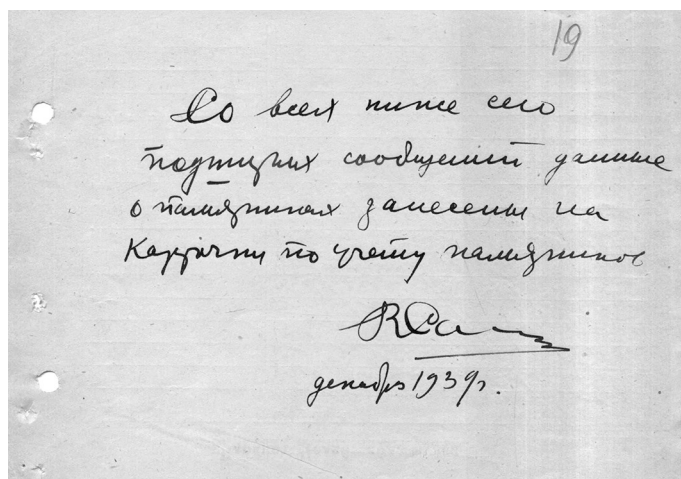 19
Со всех ниже сего
подшитых сообщений данные
о памятниках занесены на
Карточки по учету памятников
декабрь 1939г.